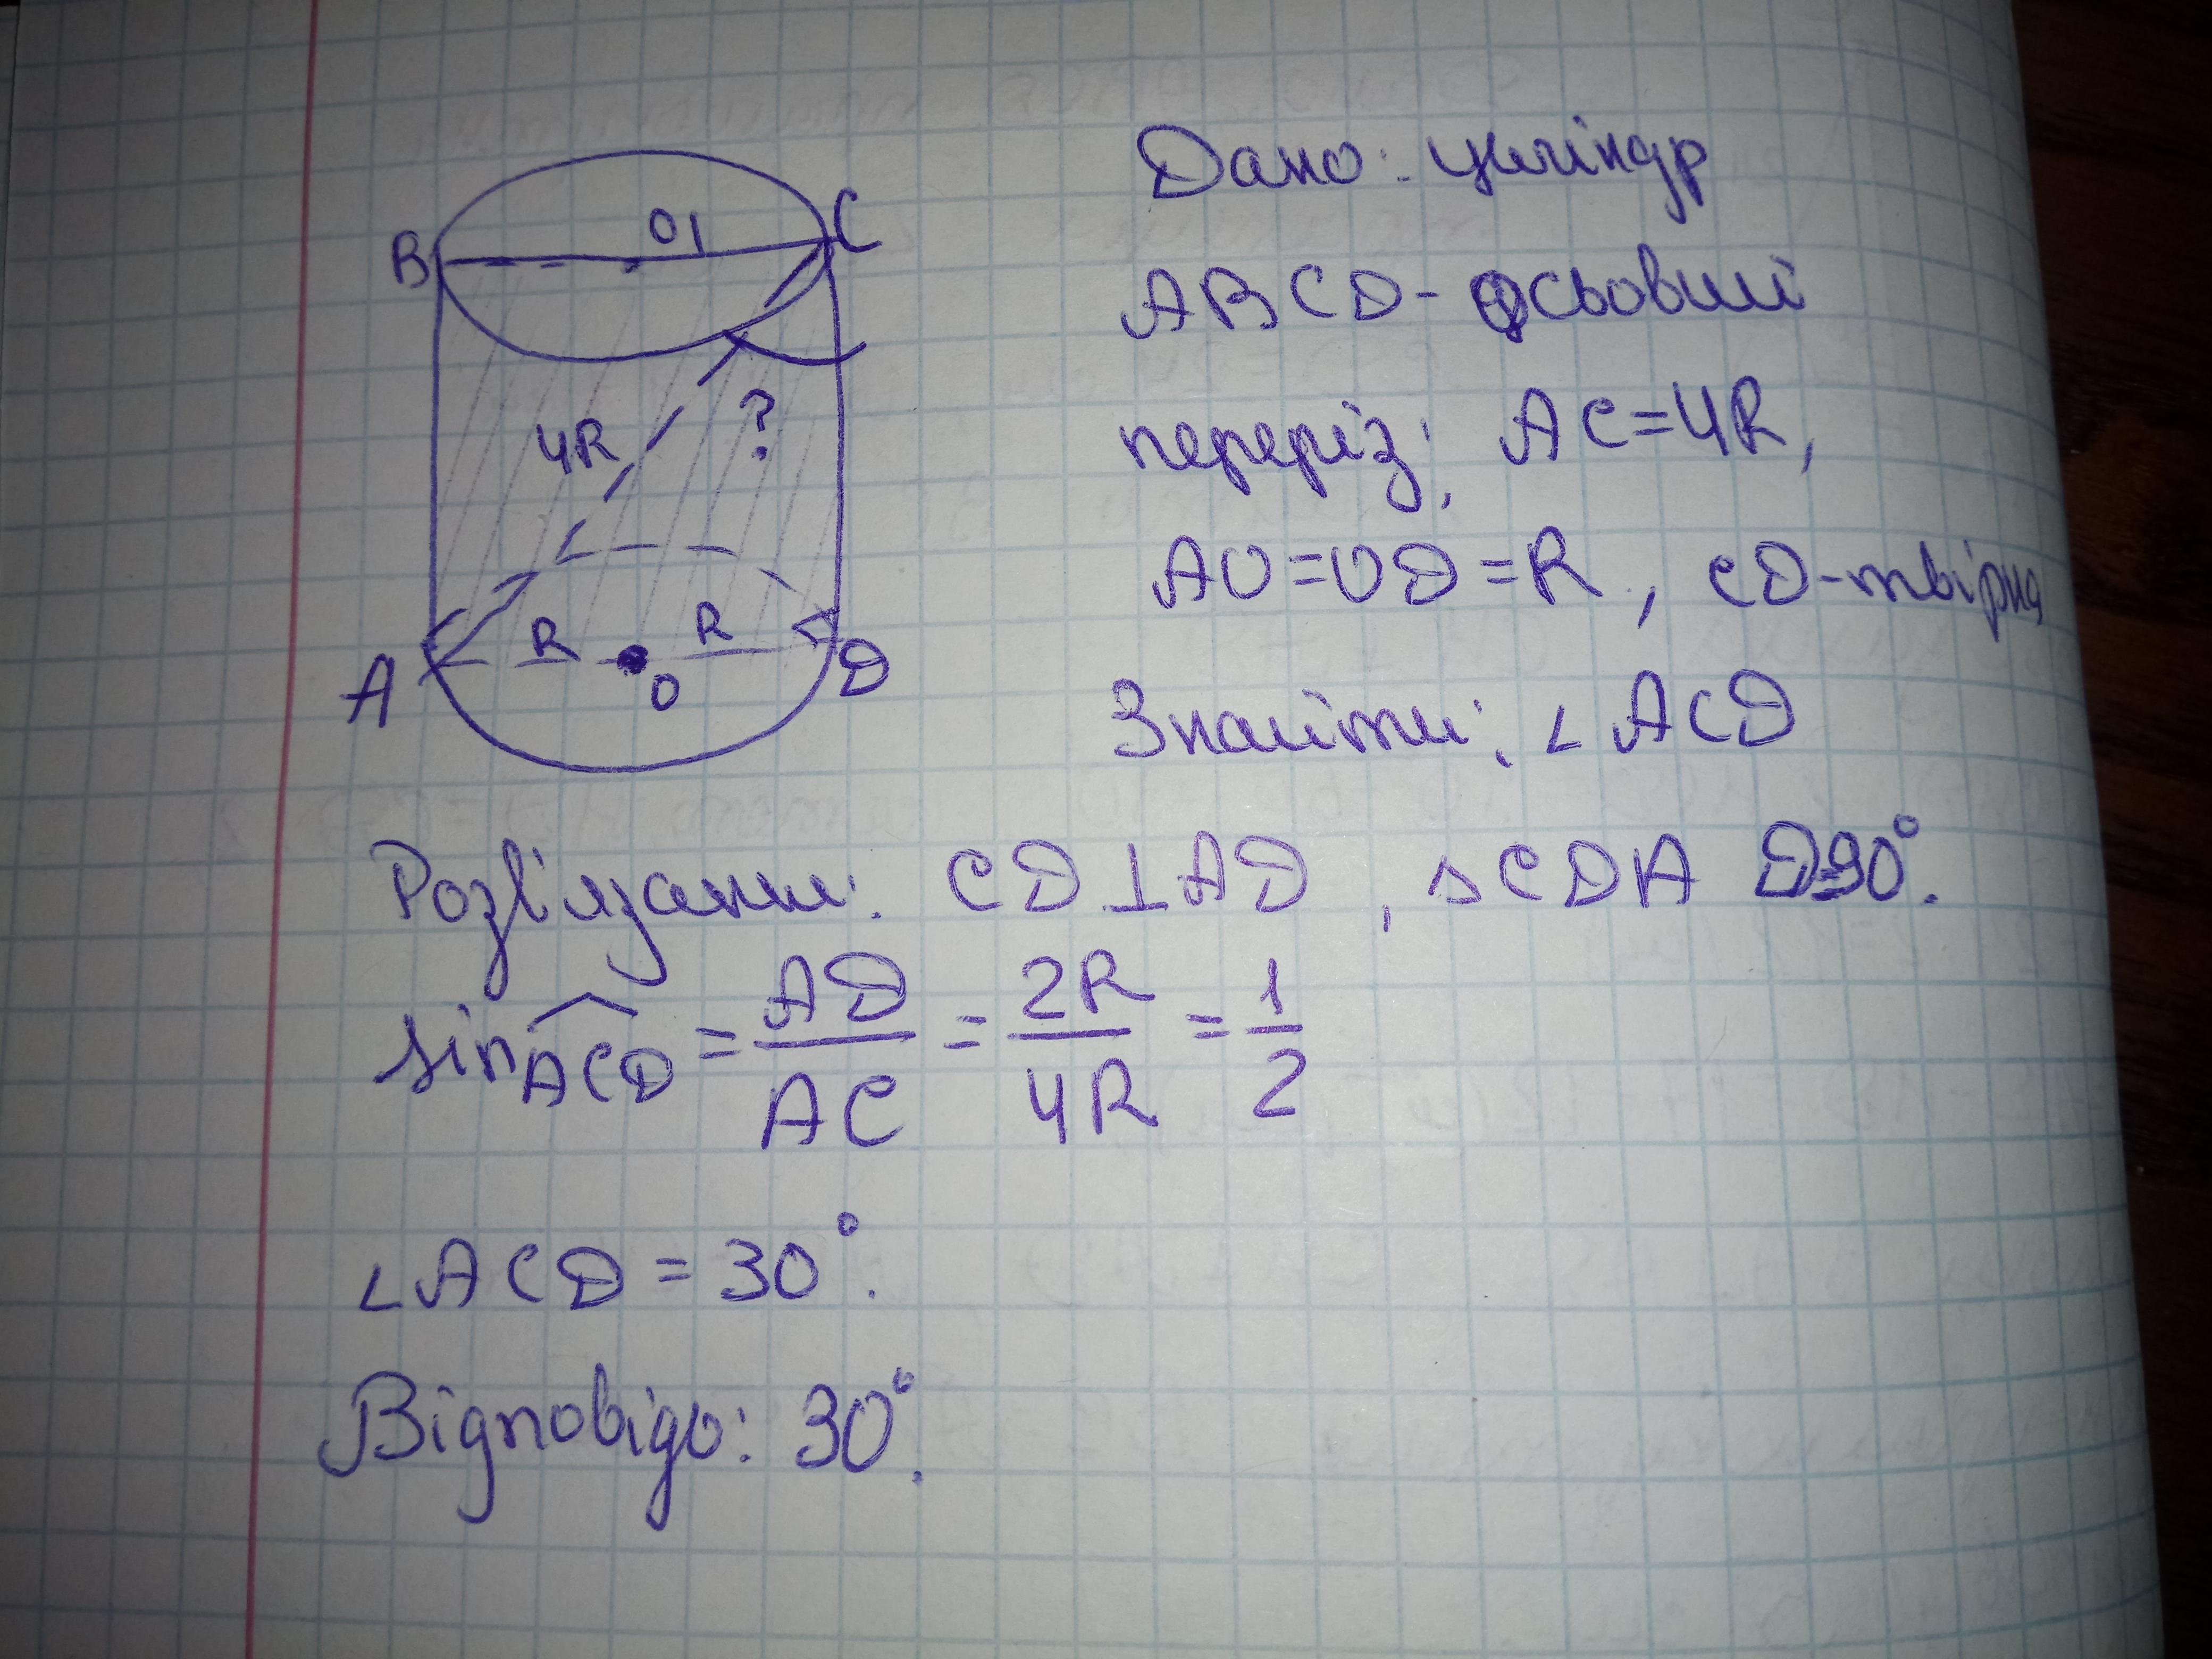 B
O1
C
4R
?
R
R
A
O
D
Дано: циліндр
ABCD - осьовий
переріз; AC=4R,
AO=OD=R, CD-твірна
Знайти: ∠ACD
Розв'язання: CD⊥AD, △CDA D=90°.
sin ACD = AD/AC = 2R/4R = 1/2
∠ACD = 30°.
Відповідь: 30°.